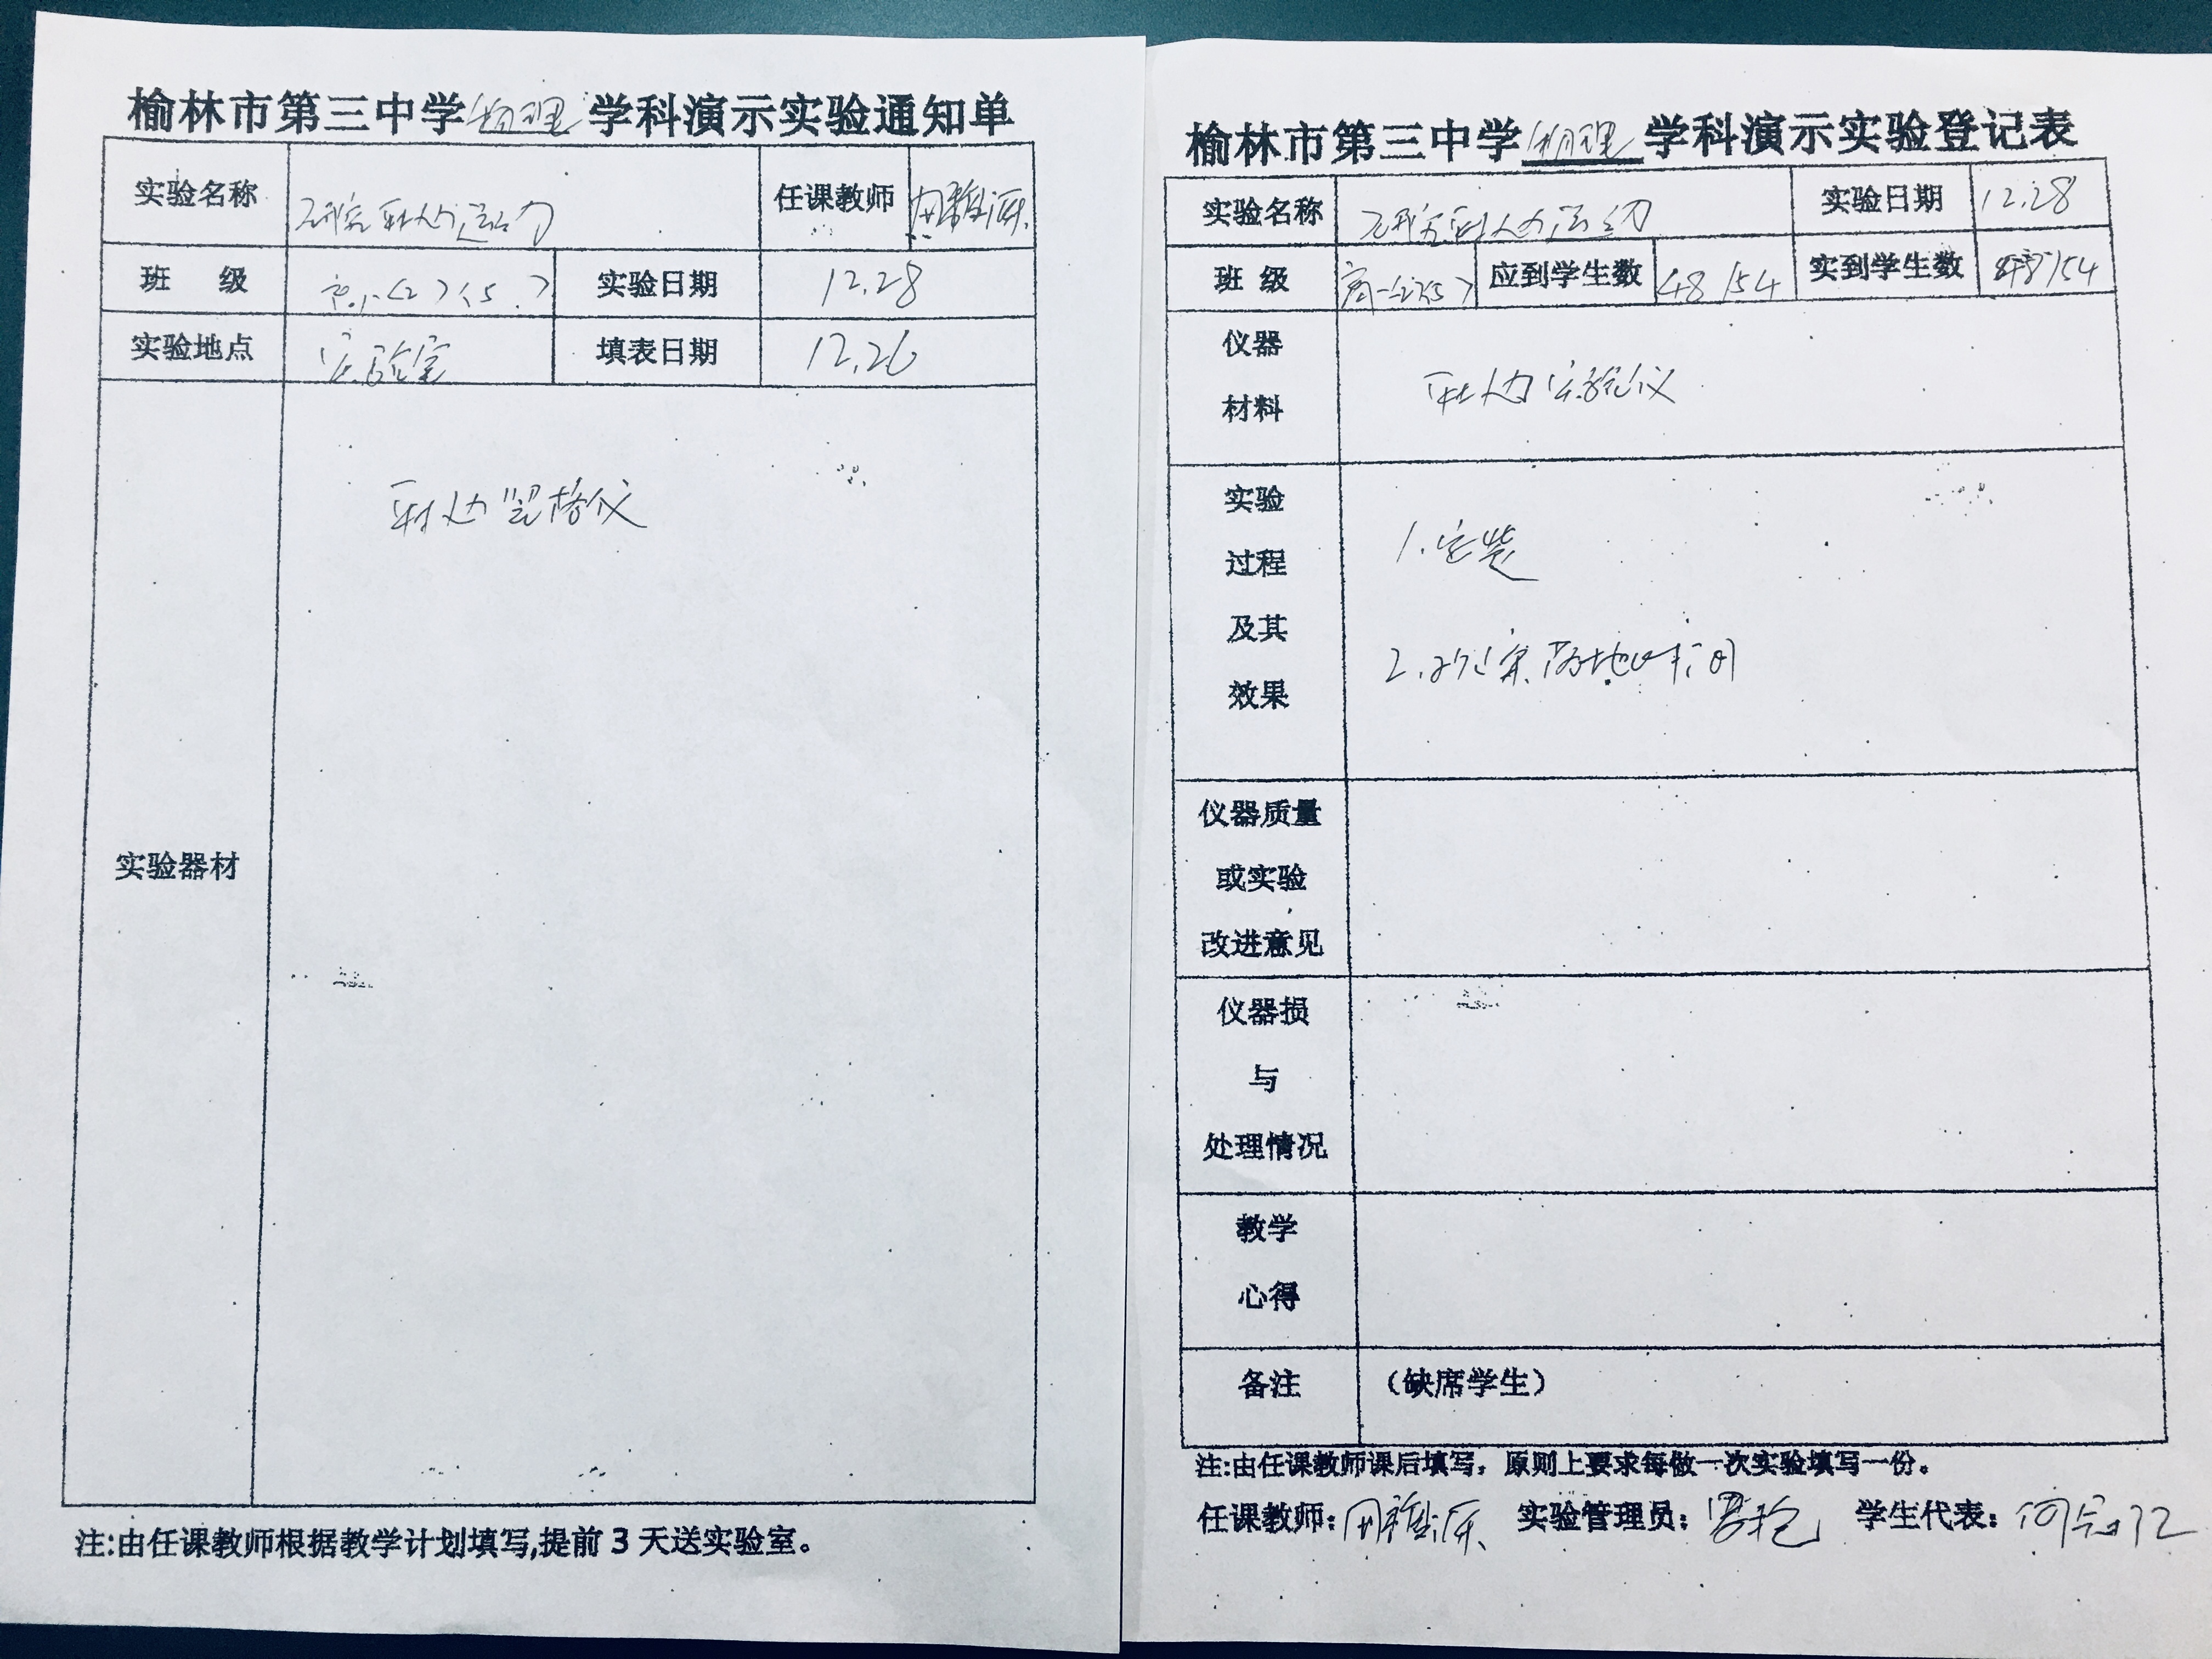 榆林市第三中学物理学科演示实验通知单
实验名称 研究平抛运动 任课教师
班 级 高一<2><5> 实验日期 12.28
实验地点 实验室 填表日期 12.26
实验器材
注:由任课教师根据教学计划填写,提前3天送实验室。
榆林市第三中学物理学科演示实验登记表
实验名称 研究平抛运动 实验日期 12.28
班 级 高一<2><5> 应到学生数 48/54 实到学生数 48/54
仪器
材料
实验仪
实验
过程
及其
效果
1.安装
2.观察落地时间
仪器质量
或实验
改进意见
仪器损
与
处理情况
教学
心得
备注 （缺席学生）
注:由任课教师课后填写，原则上要求每做一次实验填写一份。
任课教师: 实验管理员: 学生代表: